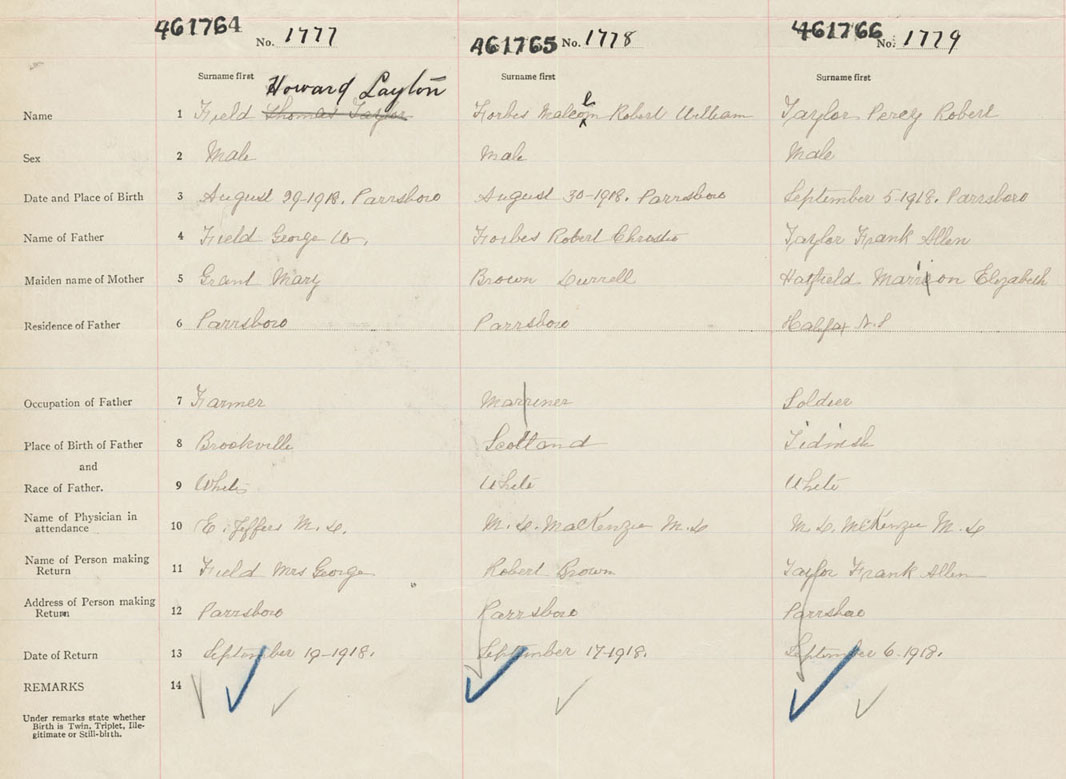 461764 No. 1777 461765 No. 1778 461766 No. 1779
Surname first Surname first Surname first
Howard Layton
Name 1 Field Thomas Taylor Forbes Malcolm Robert William Taylor Percy Robert
Sex 2 Male Male Male
Date and Place of Birth 3 August 29-1918. Parrsboro August 30-1918. Parrsboro September 5-1918. Parrsboro
Name of Father 4 Field George W. Forbes Robert Christie Taylor Frank Allen
Maiden name of Mother 5 Grant Mary Brown Durrell Hatfield Marrion Elizabeth
Residence of Father 6 Parrsboro Parrsboro Halifax N.S
Occupation of Father 7 Farmer Marriner Soldier
Place of Birth of Father 8 Brookville Scotland Tidnish
and
Race of Father. 9 White White White
Name of Physician in attendance 10 E. Jeffers M.D. M.D. MacKenzie M.D M.D. McKenzie M.D
Name of Person making Return 11 Field Mrs George Robert Brown Taylor Frank Allen
Address of Person making Return 12 Parrsboro Parrsboro Parrsboro
Date of Return 13 September 19-1918. September 17-1918. September 6-1918.
REMARKS 14
Under remarks state whether
Birth is Twin, Triplet, Ille-
gitimate or Still-birth.